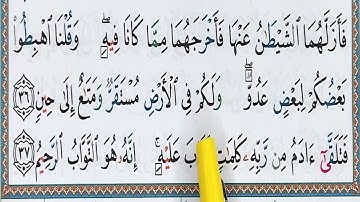 فَأَزَلَّهُمَا الشَّيْطَٰنُ عَنْهَا فَأَخْرَجَهُمَا مِمَّا كَانَا فِيهِ ۖ وَقُلْنَا اهْبِطُوا۟
بَعْضُكُمْ لِبَعْضٍ عَدُوٌّ ۖ وَلَكُمْ فِي الْأَرْضِ مُسْتَقَرٌّ وَمَتَٰعٌ إِلَىٰ حِينٍ ٣٦
فَتَلَقَّىٰٓ ءَادَمُ مِن رَّبِّهِۦ كَلِمَٰتٍ عَلَيْهِ ۚ إِنَّهُۥ هُوَ التَّوَّابُ الرَّحِيمُ ٣٧